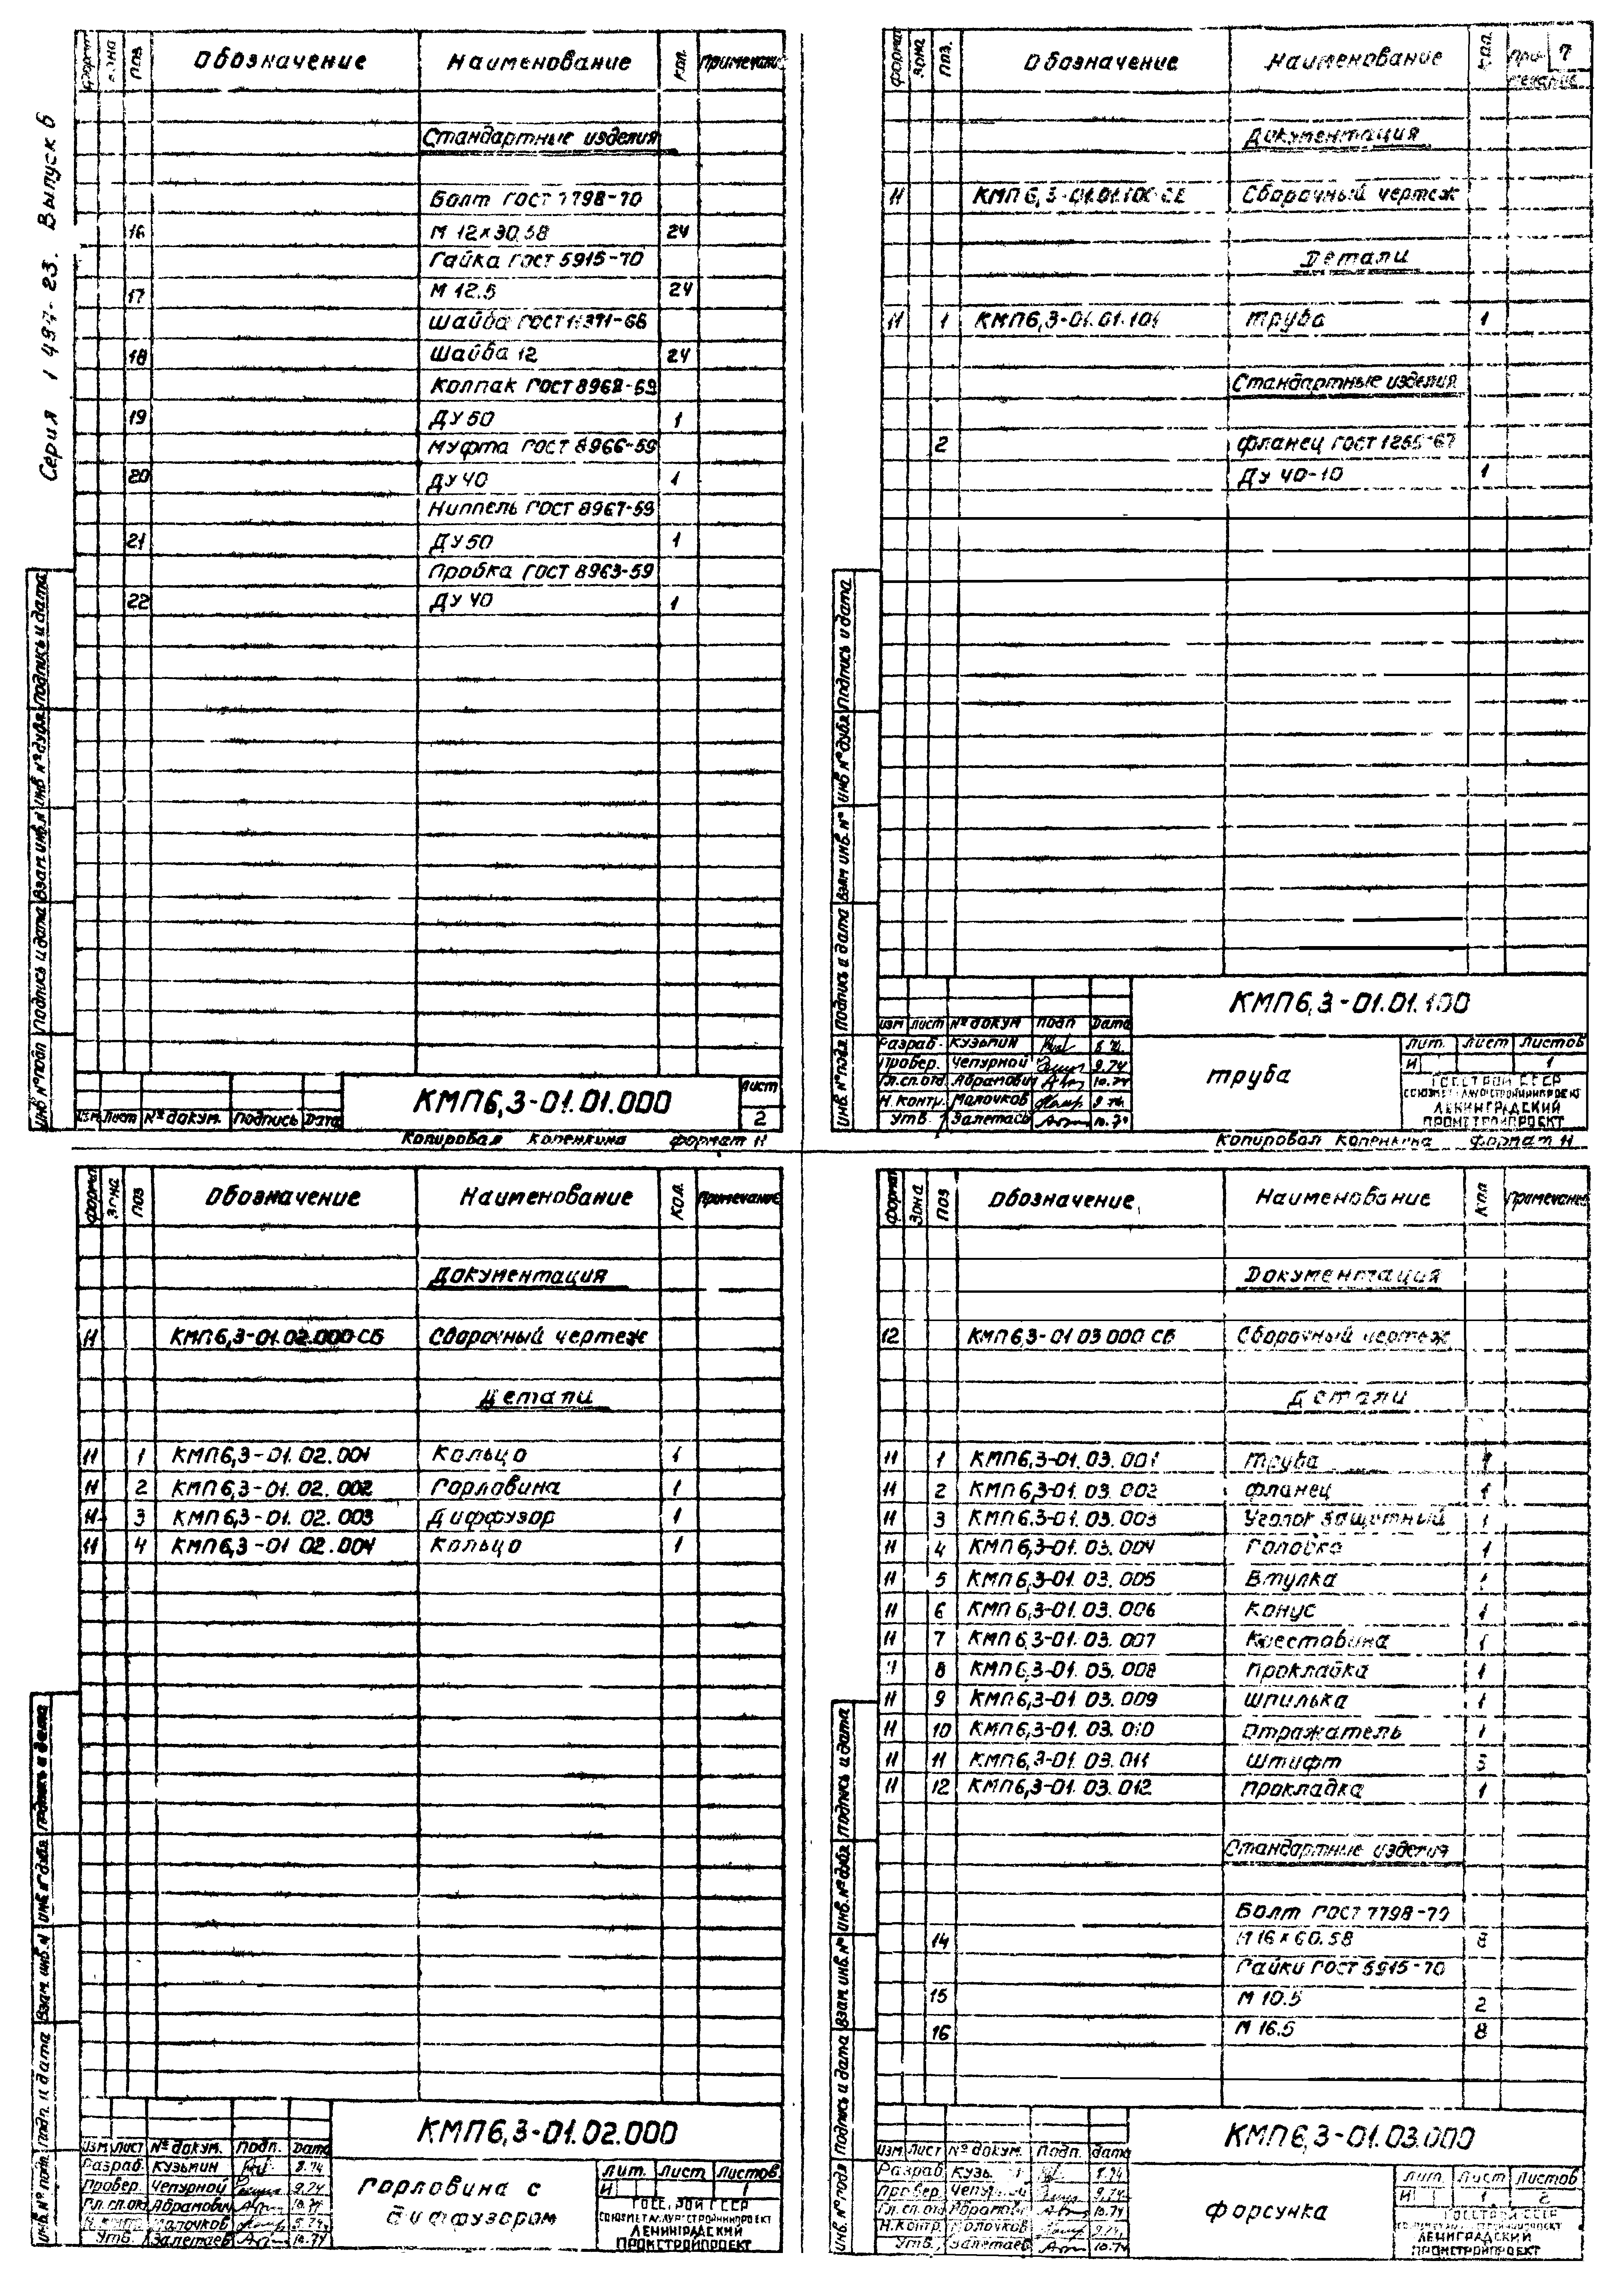 Серия 1 497-23. Выпуск 6
Формат Зона Поз. Обозначение Наименование Кол. Примечание
Стандартные изделия
Болт ГОСТ 7798-70
16 М 12×30.58 24
Гайка ГОСТ 5915-70
17 М 12.5 24
Шайба ГОСТ 11371-68
18 Шайба 12 24
Колпак ГОСТ 8962-59
19 ДУ 50 1
Муфта ГОСТ 8966-59
20 ДУ 40 1
Ниппель ГОСТ 8967-59
21 ДУ 50 1
Пробка ГОСТ 8963-59
22 ДУ 40 1
Инв. № подл Подпись и дата Взам. инв. № Инв № дубл Подпись и дата
КМП6,3-01.01.000
Лист
2
Изм Лист № докум. Подпись Дата
Копировал Копенкина Формат 11
Формат Зона Поз. Обозначение Наименование Кол. Примечание
7
Документация
11 КМП6,3-01.01.100 СБ Сборочный чертеж
Детали
11 1 КМП6,3-01.01.101 Труба 1
Стандартные изделия
2 Фланец ГОСТ 1255-67
ДУ 40-10 1
Инв. № подл Подпись и дата Взам инв. № Инв № дубл Подпись и дата
КМП6,3-01.01.100
Изм Лист № докум Подп Дата
Разраб. Кузьмин 8.74
Провер. Чепурной 9.74
Гл.сп.отд Абрамович 10.74
Н.контр. Малочков 9.74
Утв. Залетаев 10.74
Труба
Лит. Лист Листов
И 1
ГОССТРОЙ СССР
СОЮЗМЕТАЛЛУРГСТРОЙНИИПРОЕКТ
ЛЕНИНГРАДСКИЙ
ПРОМСТРОЙПРОЕКТ
Копировал Копенкина Формат 11
Формат Зона Поз Обозначение Наименование Кол. Примечание
Документация
11 КМП6,3-01.02.000 СБ Сборочный чертеж
Детали
11 1 КМП6,3-01.02.001 Кольцо 1
11 2 КМП6,3-01.02.002 Горловина 1
11 3 КМП6,3-01.02.003 Диффузор 1
11 4 КМП6,3-01 02.004 Кольцо 1
Инв. № подл. Подп. и дата Взам. инв. № Инв. № дубл Подпись и дата
КМП6,3-01.02.000
Изм Лист № докум. Подп. Дата
Разраб. Кузьмин 8.74
Провер. Чепурной 9.74
Гл.сп.отд Абрамович 10.74
Н.контр. Малочков 9.74
Утв. Залетаев 10.74
Горловина с
диффузором
Лит. Лист Листов
И 1
ГОССТРОЙ СССР
СОЮЗМЕТАЛЛУРГСТРОЙНИИПРОЕКТ
ЛЕНИНГРАДСКИЙ
ПРОМСТРОЙПРОЕКТ
Формат Зона Поз Обозначение Наименование Кол Примечание
Документация
12 КМП6,3-01 03 000 СБ Сборочный чертеж
Детали
11 1 КМП6,3-01. 03. 001 Труба 1
11 2 КМП6,3-01. 03. 002 Фланец 1
11 3 КМП6,3-01. 03. 003 Уголок защитный 1
11 4 КМП6,3-01. 03. 004 Головка 1
11 5 КМП6,3-01. 03. 005 Втулка 1
11 6 КМП6,3-01. 03. 006 Конус 1
11 7 КМП6,3-01. 03. 007 Крестовина 1
11 8 КМП6,3-01. 03. 008 Прокладка 1
11 9 КМП6,3-01 03. 009 Шпилька 1
11 10 КМП6,3-01. 03. 010 Отражатель 1
11 11 КМП6,3-01. 03. 011 Штифт 3
11 12 КМП6,3-01. 03. 012 Прокладка 1
Стандартные изделия
Болт ГОСТ 7798-70
14 М 16×60.58
Гайки ГОСТ 5915-70
15 М 10.5 2
16 М 16.5 8
Инв. № подл Подпись и дата Взам. инв. № Инв. № дубл Подпись и дата
КМП6,3-01.03.000
Изм Лист № докум. Подп. Дата
Разраб Кузьмин 8.74
Провер. Чепурной 9.74
Гл.сп.отд Абрамович 10.74
Н.контр. Малочков 9.74
Утв. Залетаев 10.74
Форсунка
Лит. Лист Листов
И 1 2
ГОССТРОЙ СССР
СОЮЗМЕТАЛЛУРГСТРОЙНИИПРОЕКТ
ЛЕНИГРАДСКИЙ
ПРОМСТРОЙПРОЕКТ